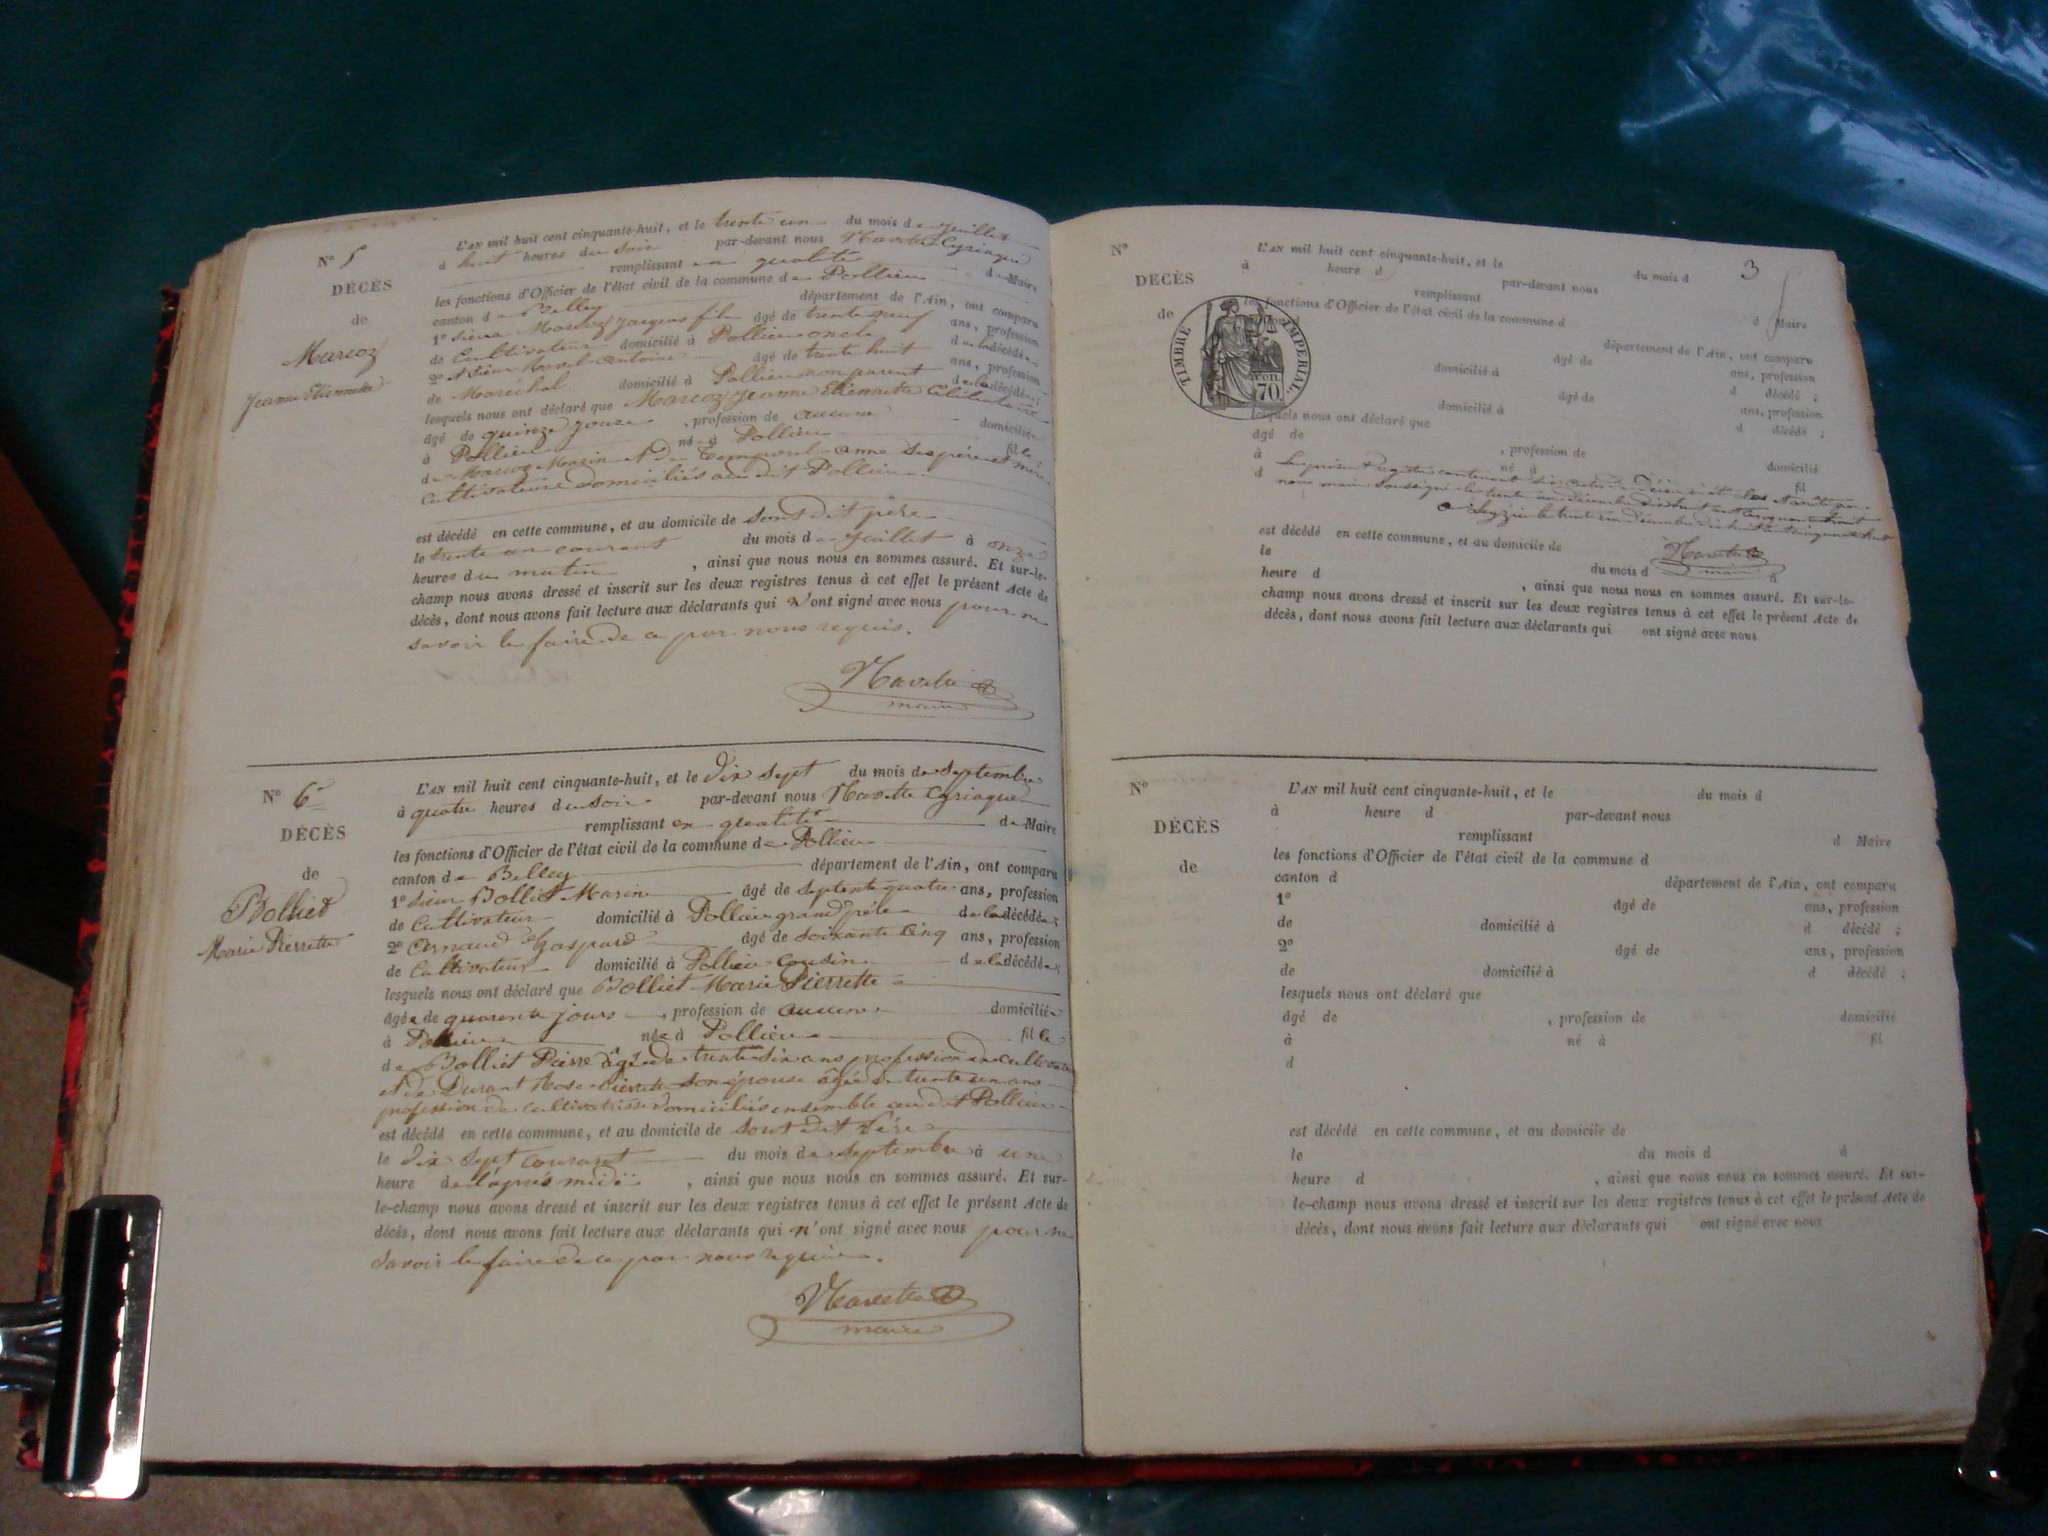 N° 5
DÉCÈS
de
Marcoz
Jeanne Etiennette
L'AN mil huit cent cinquante-huit, et le trente un du mois de Juillet
à huit heures du soir par-devant nous Navette Cyriaque
remplissant en qualité de Maire
les fonctions d'Officier de l'état civil de la commune de Pollieu
canton de Belley département de l'Ain, ont comparu
1° Sieur Marcoz Jacques fils âgé de trente neuf ans, profession
de Cultivateur domicilié à Pollieu oncle de la décédée ;
2° et Sieur Antoine âgé de trente huit ans, profession
de Maréchal domicilié à Pollieu non parent de la décédée ;
lesquels nous ont déclaré que Marcoz Jeanne Etiennette Célibataire
âgé de quinze jours , profession de aucune domiciliée
à Pollieu née à Pollieu fille
de Marcoz Marin et de anne ses père et mère
Cultivateurs domiciliés au dit Pollieu
est décédé en cette commune, et au domicile de sont dit père
le trente un courant du mois de Juillet à onze
heures du matin , ainsi que nous nous en sommes assuré. Et sur-le-
champ nous avons dressé et inscrit sur les deux registres tenus à cet effet le présent Acte de
décès, dont nous avons fait lecture aux déclarants qui n'ont signé avec nous pour ne
savoir le faire de ce par nous requis.
Navette
maire
N° 6
DÉCÈS
de
Bolliet
Marie Pierrette
L'AN mil huit cent cinquante-huit, et le dix sept du mois de Septembre
à quatre heures du soir par-devant nous Navette Cyriaque
remplissant en qualité de Maire
les fonctions d'Officier de l'état civil de la commune de Pollieu
canton de Belley département de l'Ain, ont comparu
1° Sieur Bolliet Marin âgé de septente quatre ans, profession
de Cultivateur domicilié à Pollieu grand père de la décédée ;
2° Arnaud Gaspard âgé de soixante cinq ans, profession
de Cultivateur domicilié à Pollieu Cousin de la décédée ;
lesquels nous ont déclaré que Bolliet Marie Pierrette
âgée de quarente jours , profession de aucune domiciliée
à Pollieu née à Pollieu fille
de Bolliet Pierre âgé de trente six ans profession de cultivateur
et de Durant Rose Pierrette son épouse âgée de trente un ans
profession de cultivatrice domiciliés ensemble au dit Pollieu
est décédé en cette commune, et au domicile de sont dit Père
le dix sept courant du mois de septembre à une
heure de l'après midi , ainsi que nous nous en sommes assuré. Et sur-
le-champ nous avons dressé et inscrit sur les deux registres tenus à cet effet le présent Acte de
décès, dont nous avons fait lecture aux déclarants qui n'ont signé avec nous pour ne
savoir le faire de ce par nous requis.
Navette
maire
3
N°
DÉCÈS
de
TIMBRE IMPERIAL
70
L'AN mil huit cent cinquante-huit, et le du mois d
à heure d par-devant nous
remplissant d Maire
les fonctions d'Officier de l'état civil de la commune d
département de l'Ain, ont comparu
âgé de ans, profession
domicilié à d décédé ;
âgé de ans, profession
domicilié à d décédé ;
lesquels nous ont déclaré que
âgé de , profession de domicilié
à né à fil
d
Le présent Registre contenant six actes de Décès a été clos et arrêté par
nous maire soussigné le trente un décembre dix huit cent cinquante huit
le trente un décembre dix huit cent cinquante huit
Navette
maire
est décédé en cette commune, et au domicile de
le du mois d à
heure d , ainsi que nous nous en sommes assuré. Et sur-le-
champ nous avons dressé et inscrit sur les deux registres tenus à cet effet le présent Acte de
décès, dont nous avons fait lecture aux déclarants qui ont signé avec nous
N°
DÉCÈS
de
L'AN mil huit cent cinquante-huit, et le du mois d
à heure d par-devant nous
remplissant d Maire
les fonctions d'Officier de l'état civil de la commune d
canton d département de l'Ain, ont comparu
1° âgé de ans, profession
de domicilié à d décédé ;
2° âgé de ans, profession
de domicilié à d décédé ;
lesquels nous ont déclaré que
âgé de , profession de domicilié
à né à fil
d
est décédé en cette commune, et au domicile de
le du mois d à
heure d , ainsi que nous nous en sommes assuré. Et sur-
le-champ nous avons dressé et inscrit sur les deux registres tenus à cet effet le présent Acte de
décès, dont nous avons fait lecture aux déclarants qui ont signé avec nous